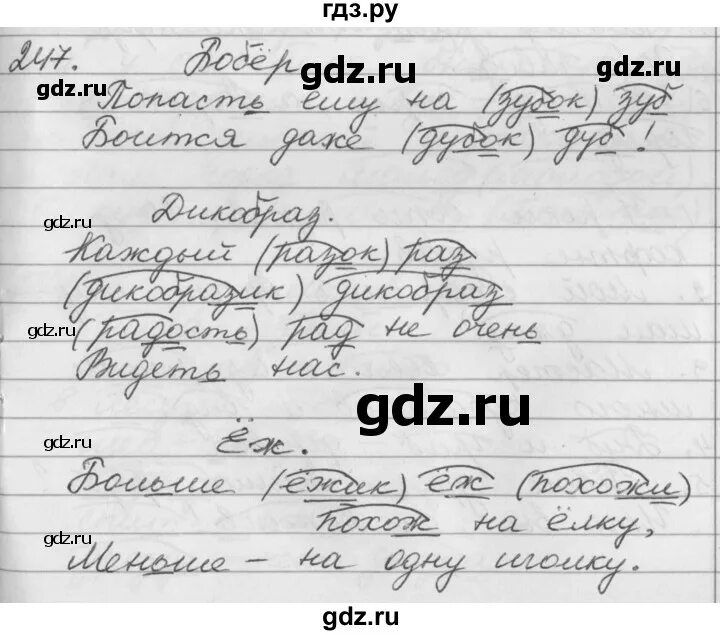 гдз.ру
247. Бобёр
gdz.ru
Попасть ему на (зубок) зуб
Боится даже (дубок) дуб!
gdz.ru
gdz.ru
Дикобраз.
gdz.ru
Каждый (разок) раз
(дикобразик) дикобраз
gdz.ru
(радость) рад не очень
Видеть нас.
gdz.ru
Ёж.
gdz.ru
Больше (ёжик) ёж (похожи)
похож на ёлку,
gdz.ru
Меньше – на одну иголку.
gdz.ru